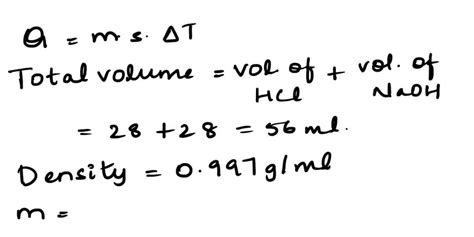 Q = m s. ΔT
Total volume = vol of HCl + vol. of NaOH
= 28 + 28 = 56 ml.
Density = 0.997 g/ml
m =